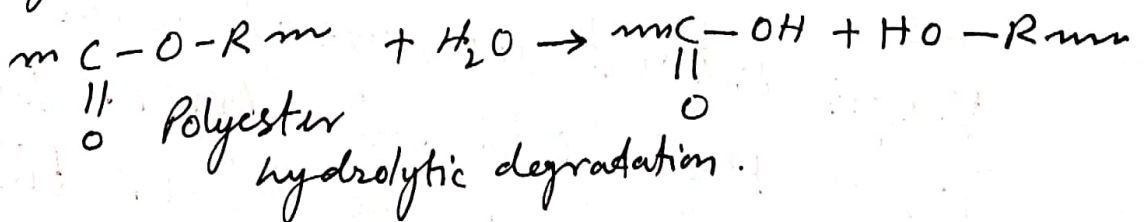 ~~~ C - O - R ~~~ + H₂O → ~~~ C - OH + HO - R ~~~
|| ||
O O
Polyester
hydrolytic degradation.